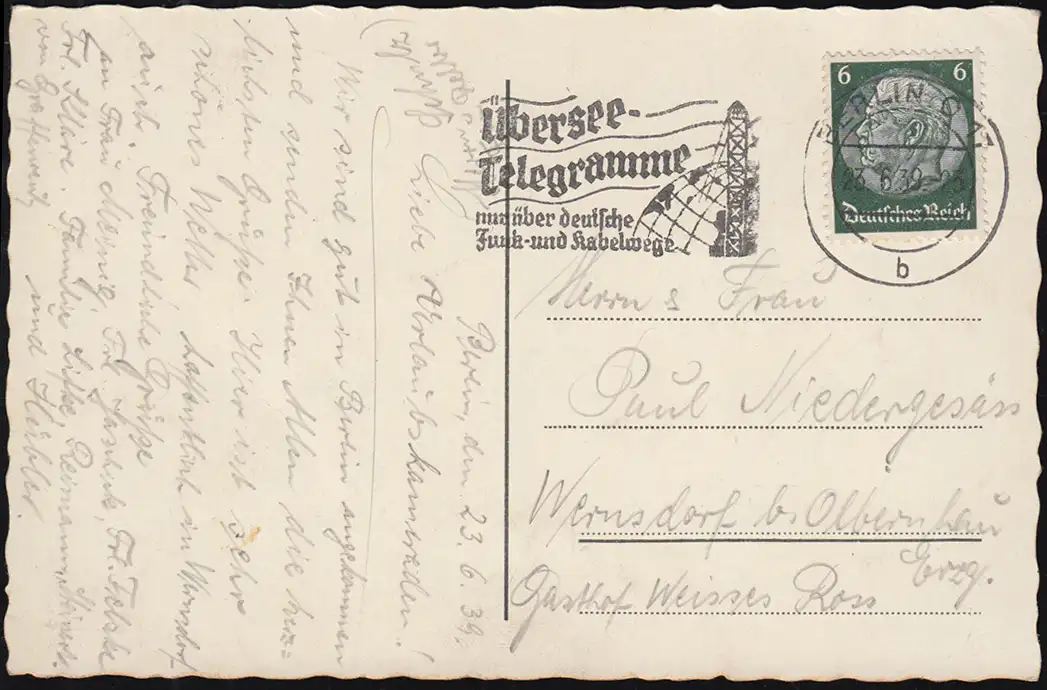 Berlin, den 23.6.39.
Liebe Urlaubskameraden!
Wir sind gut in Berlin angekommen
und senden Ihnen Allen die herz-
lichsten Grüsse. Hier ist sehr
schönes Wetter hoffentlich in Wernsdorf
auch. Freundliche Grüße
an Frau Mernig, Frl. Jaschek, Frl.
Frl. Kläre. Familie Reimann,
und
Übersee-
Telegramme
nur über deutsche
Funk-und Kabelwege
6 6
Deutsches Reich
BERLIN C
23.6.39
b
Herrn & Frau
Paul Niedergesäss
Wernsdorf b. Olbernhau
Erzg.
Gasthof Weisses Ross